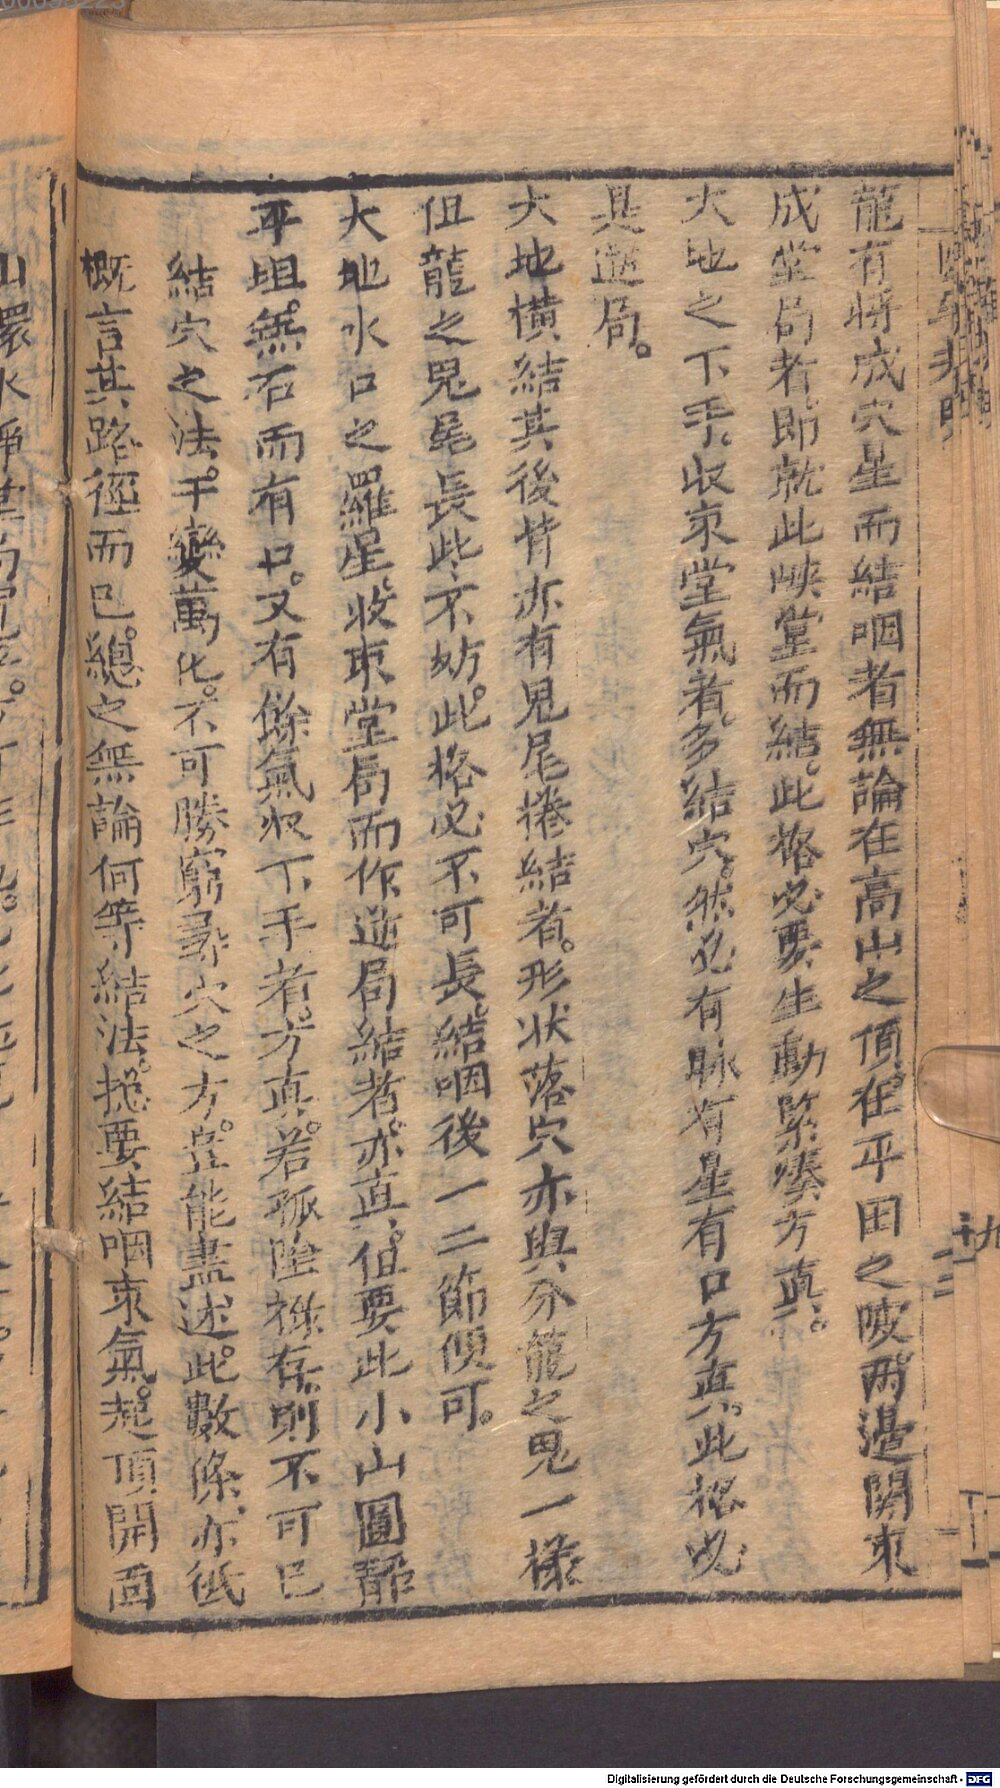 龍有將成穴星而結咽者無論在高山之頂在平田之陂兩邊關束
成堂局者即就此峽堂而結。此格必要生動緊湊方真。
大地之下手收束堂氣者多結穴。然必有脉有星有口方真。此格必
具逆局。
大地橫結其後背亦有鬼尾捲結者。形狀落穴亦與分龍之鬼一樣
但龍之鬼尾長些不妨。此格必不可長。結咽後一二節便可。
大地水口之羅星收束堂局而作逆局結者。亦真。但要此小山圓静
平坦。無石而有口。又有餘氣收下手者。方真。若孤陰祿存。則不可已
結穴之法。千變萬化。不可勝窮尋穴之方。豈能盡述。此數條亦祇
概言其路徑而已。總之無論何等結法。揔要結咽束氣。起頂開面
山環水
Digitalisierung gefördert durch die Deutsche Forschungsgemeinschaft - DFG